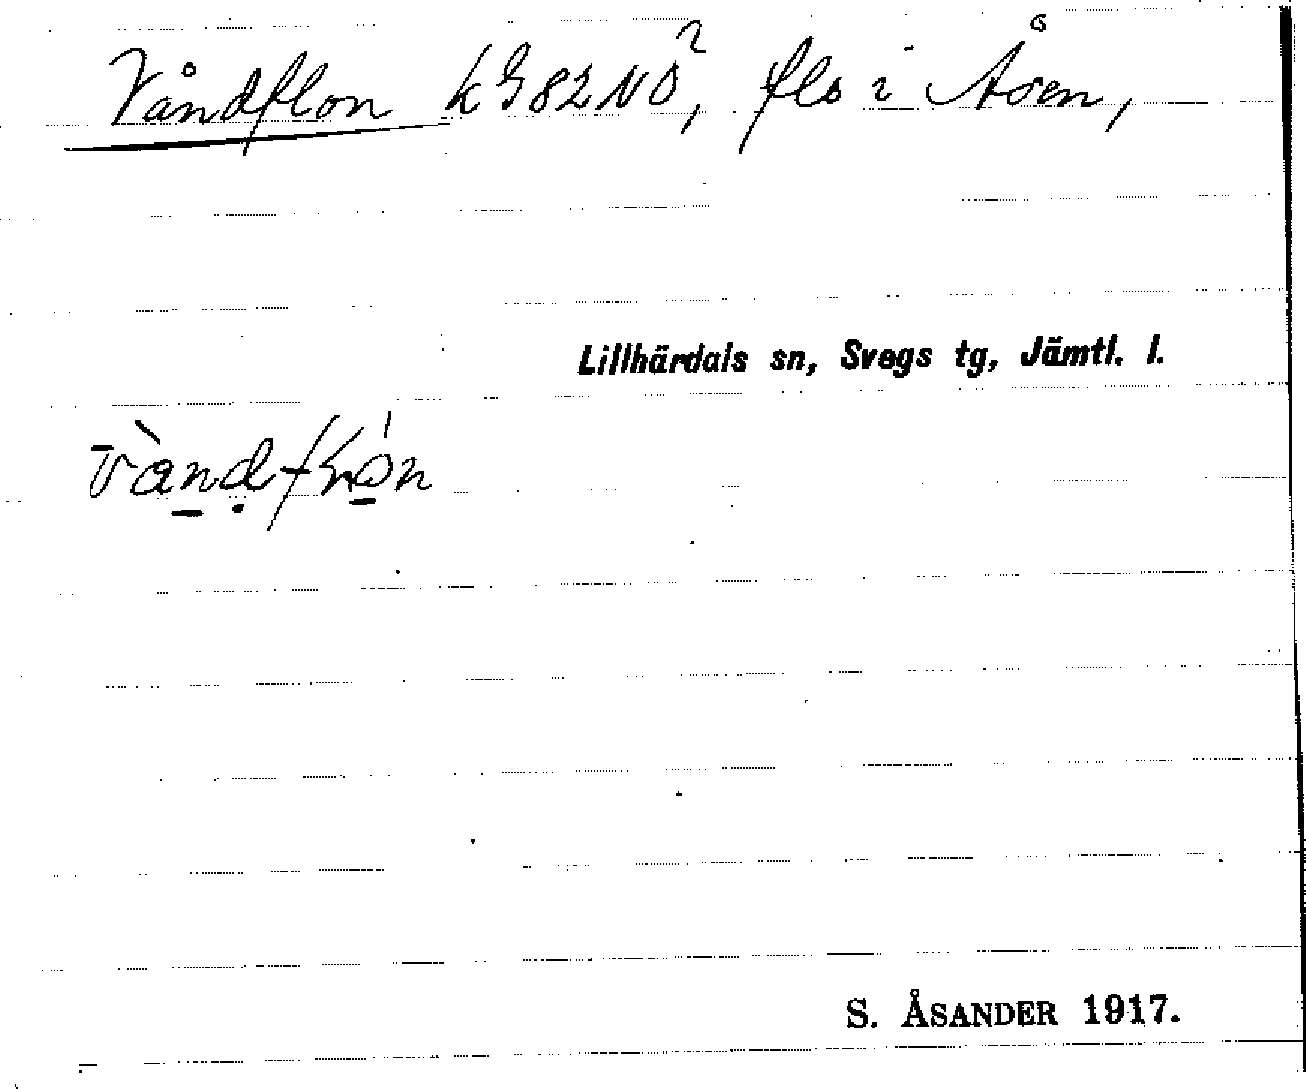 Våndflon k G82NO², flo i Åsen,
Lillhärdals sn, Svegs tg, Jämtl. l.
S. ÅSANDER 1917.